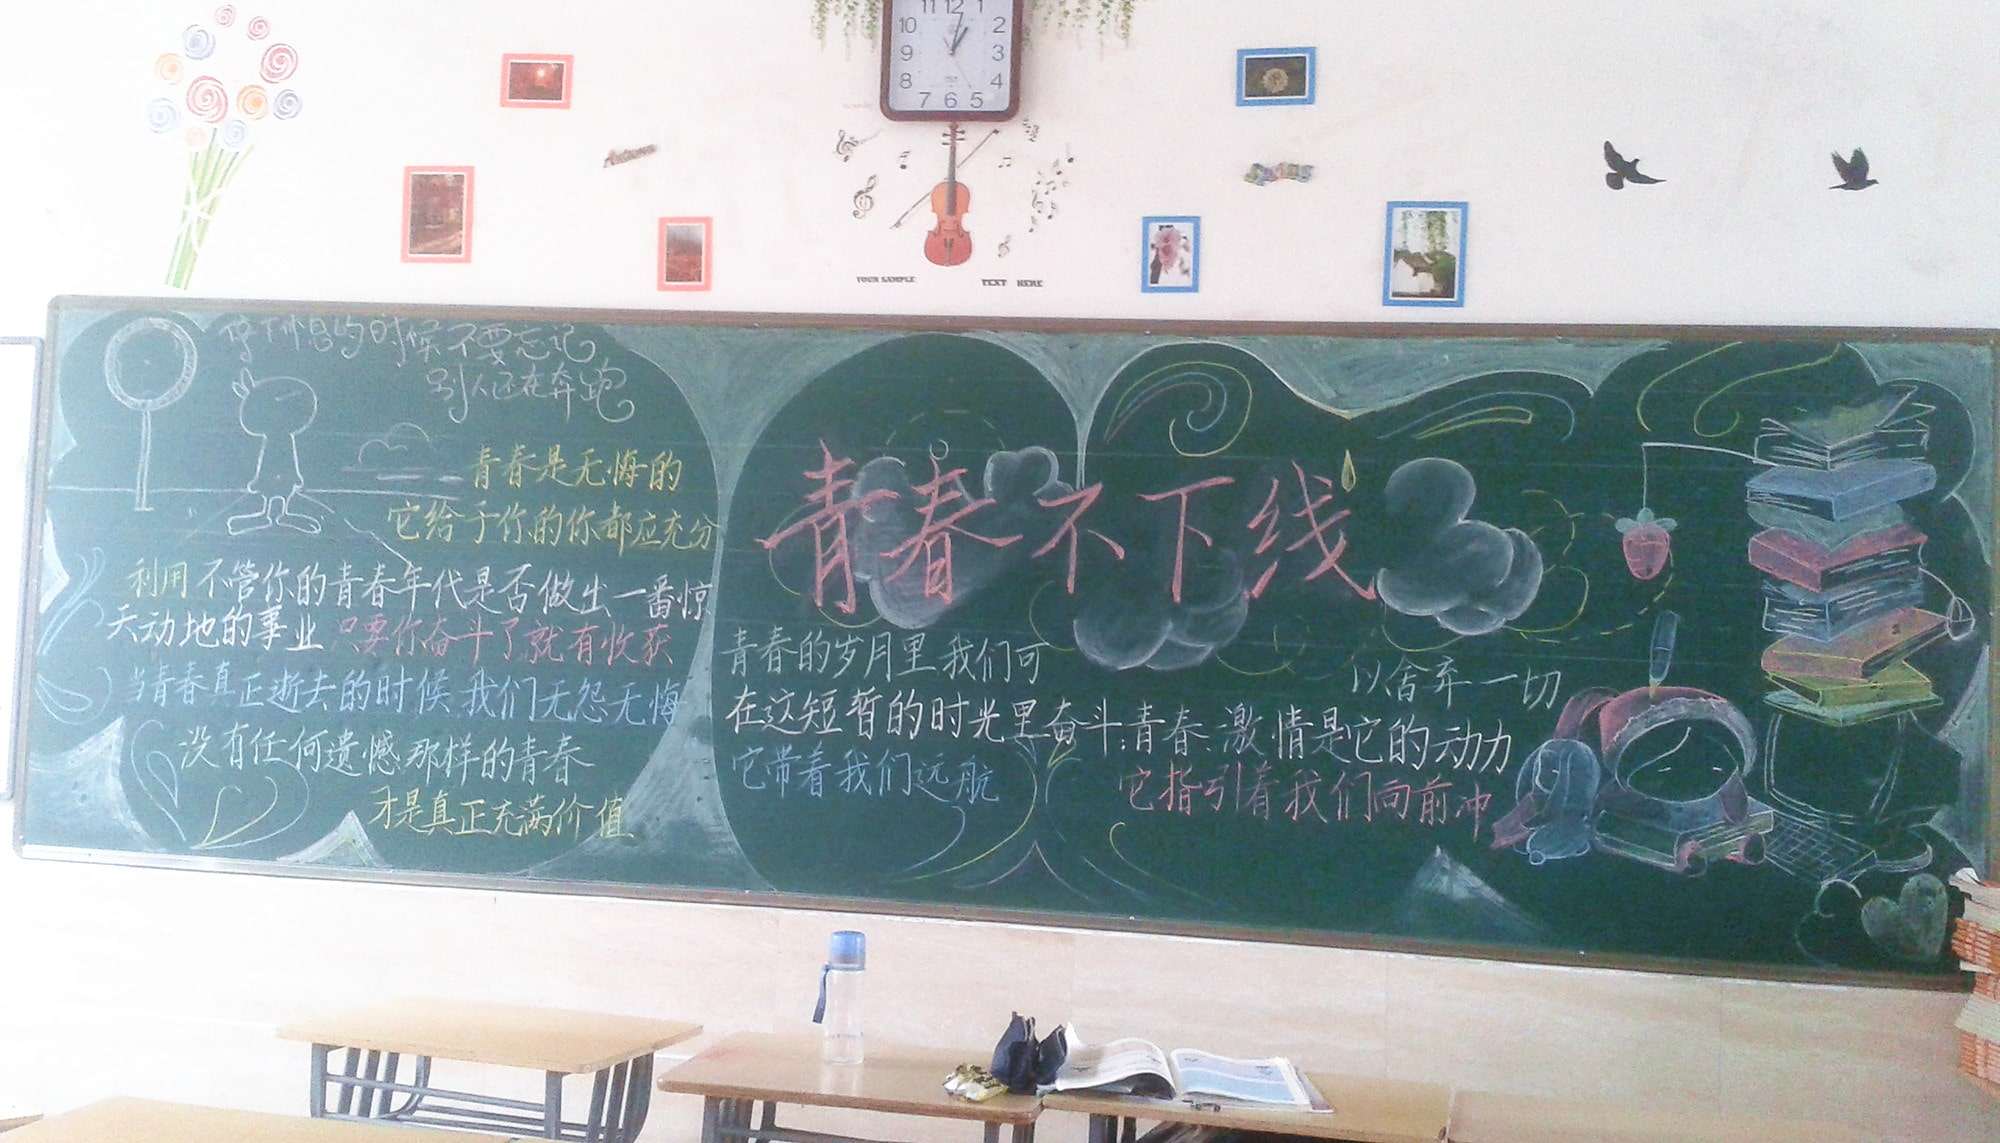 11 12 1
10 2
9 3
8 4
7 6 5
Autumn
Spring
YOUR SAMPLE TEXT HERE
停下休息的时候不要忘记
别人还在奔跑
青春是无悔的
它给予你的你都应充分
利用不管你的青春年代是否做出一番惊
天动地的事业只要你奋斗了就有收获
当青春真正逝去的时候我们无怨无悔
没有任何遗憾那样的青春
才是真正充满价值
青春不下线
青春的岁月里我们可
以舍弃一切
在这短暂的时光里奋斗;青春、激情是它的动力
它带着我们远航
它指引着我们向前冲